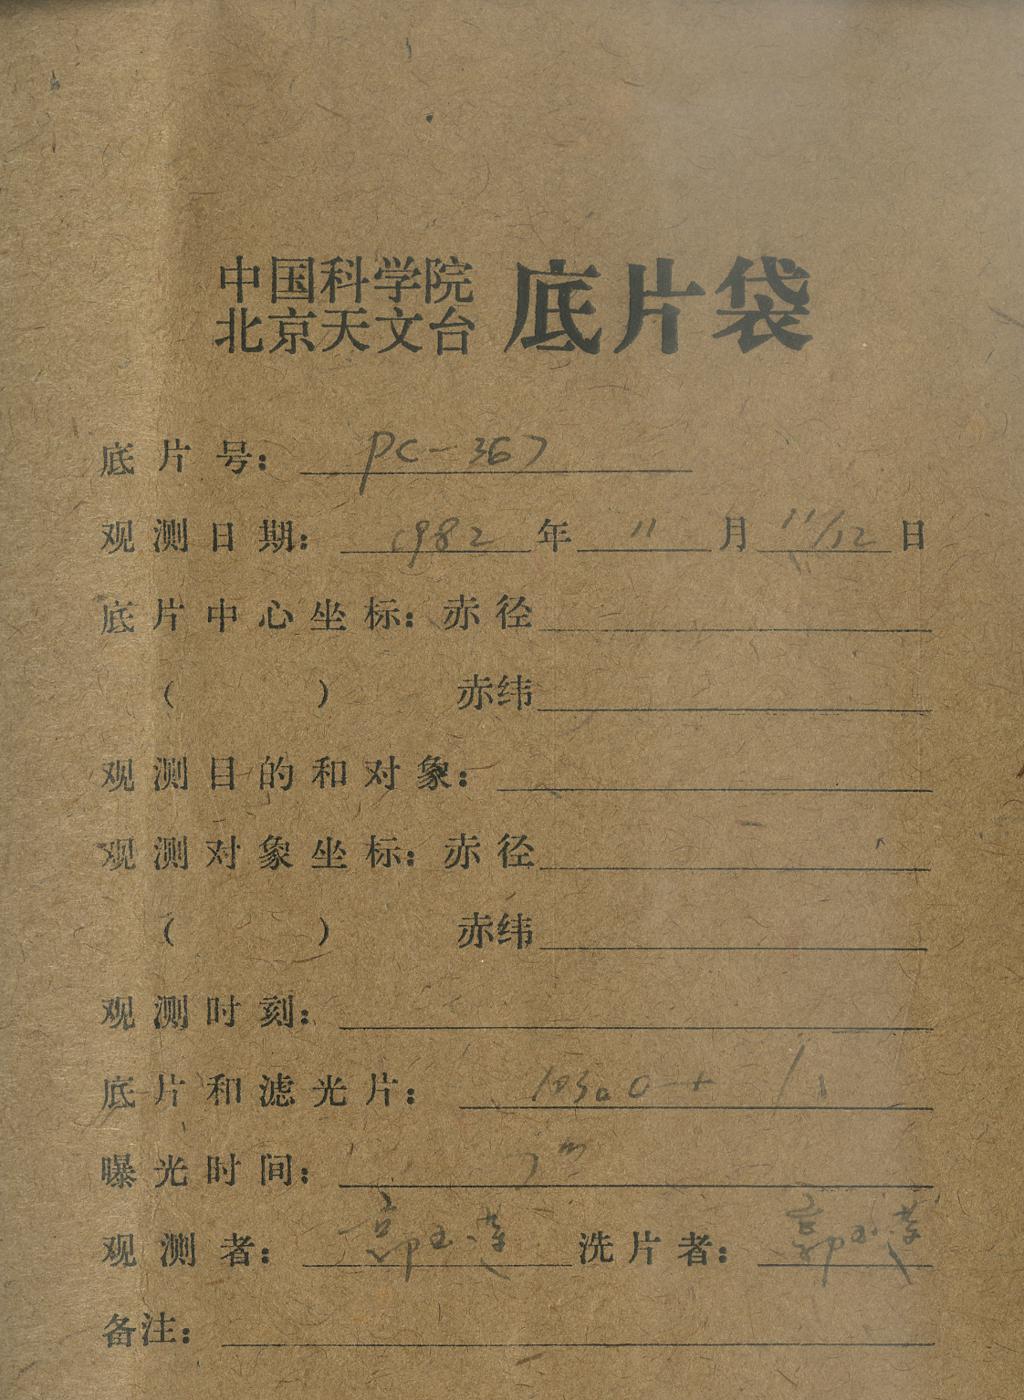 中国科学院
北京天文台
底片袋
底片号： PC-367
观测日期： 1982 年 11 月 11/12 日
底片中心坐标：赤径
（ ） 赤纬
观测目的和对象：
观测对象坐标：赤径
（ ） 赤纬
观测时刻：
底片和滤光片： 103aO +
曝光时间： 7m
观测者： 郭玉莲 洗片者： 郭玉莲
备注：